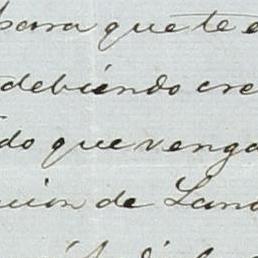 para que te e
debiendo cre
ido que venga
cion de Lan